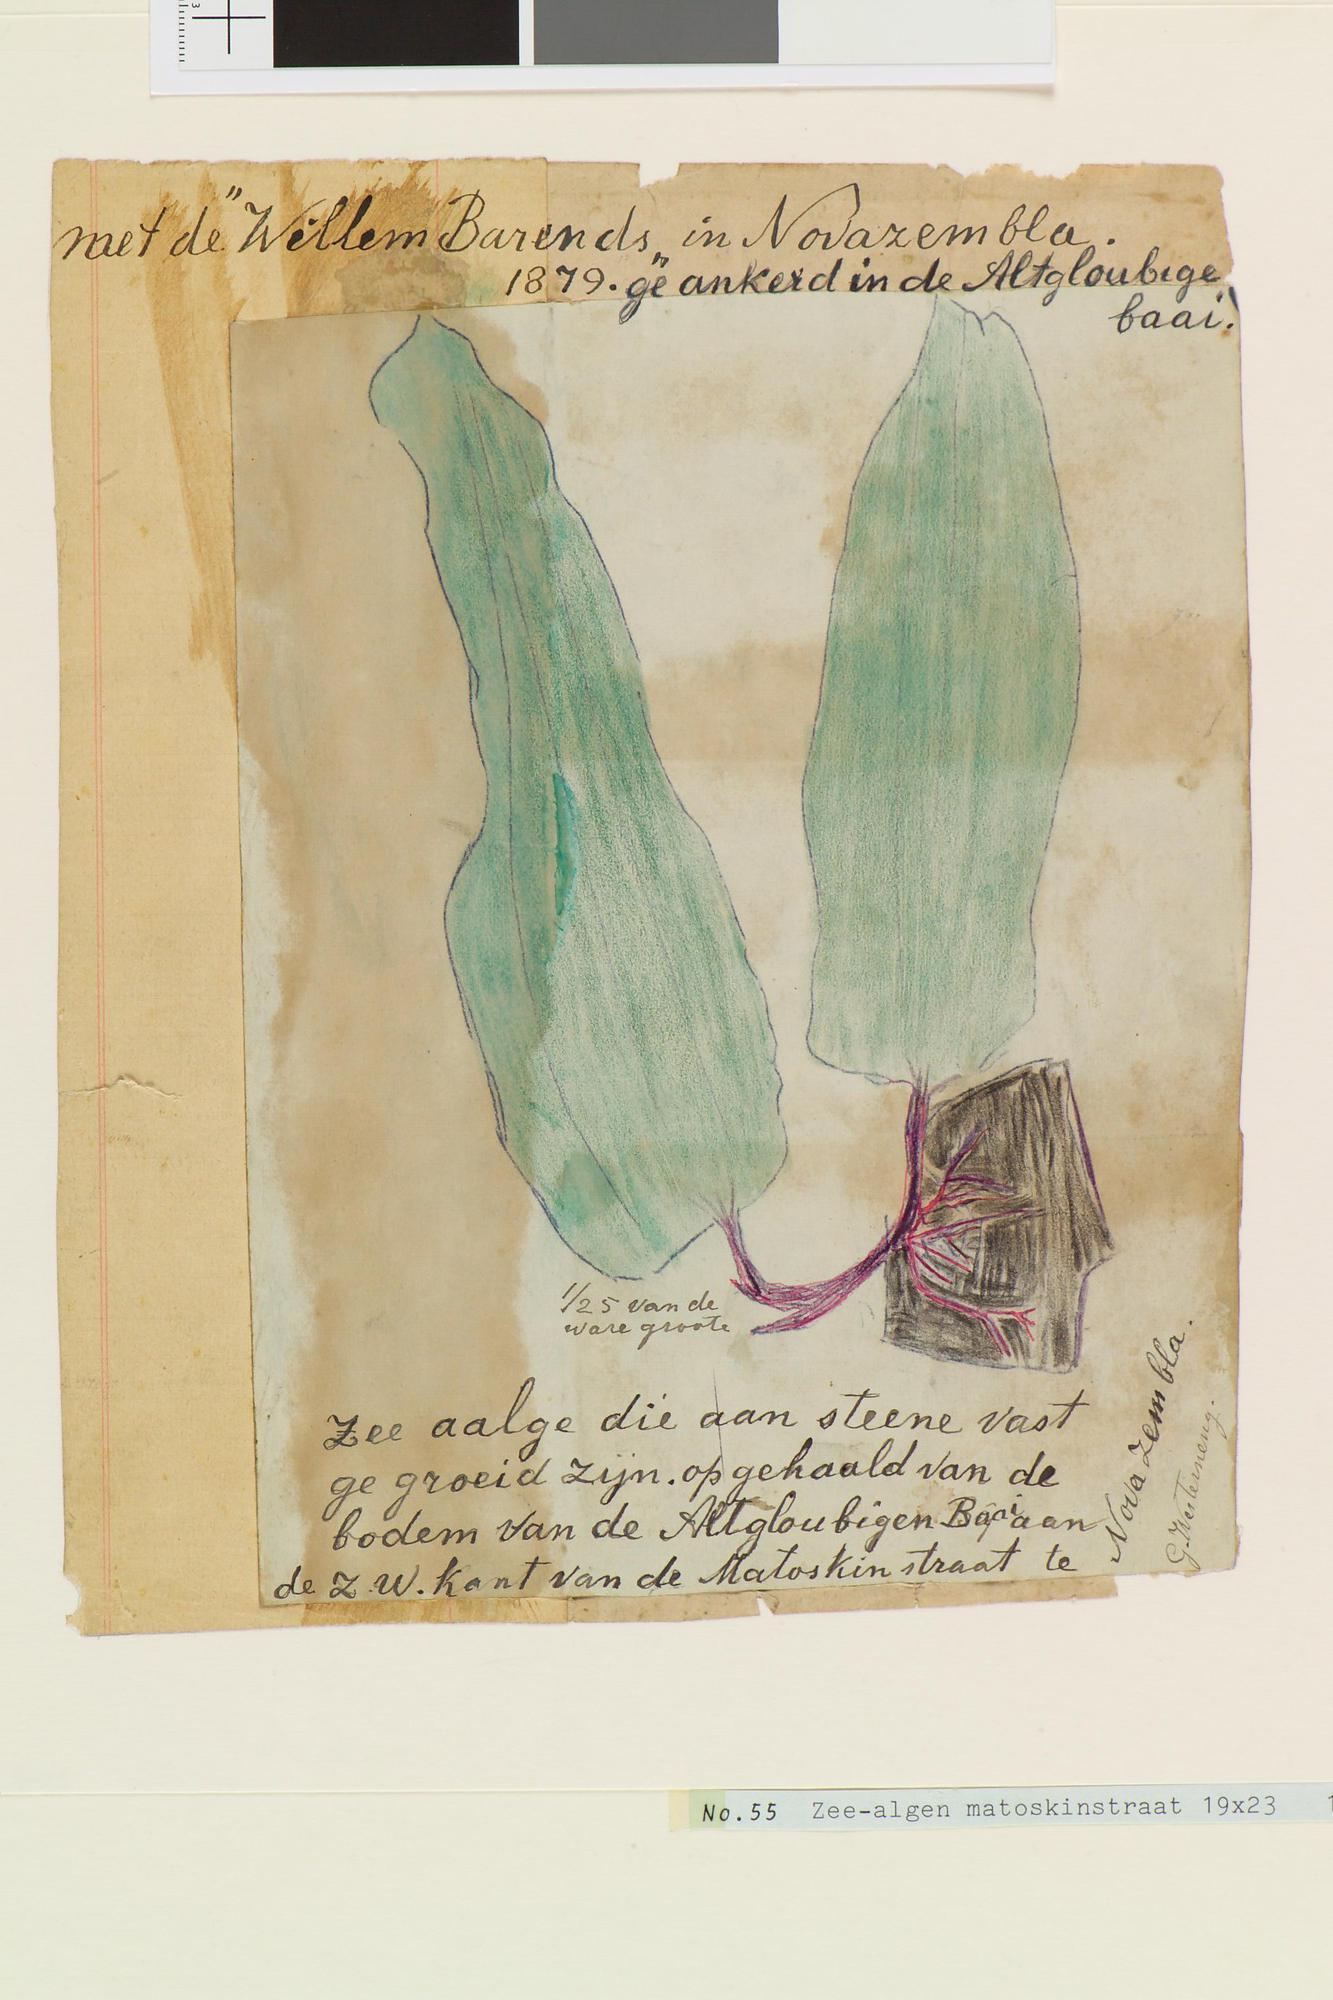 met de "Willem Barends" in Novazembla.
1879. ge ankerd in de Altgloubige
baai.
1/25 van de
ware groote
Zee aalge die aan steene vast
ge groeid zijn. opgehaald van de
bodem van de Altgloubigen Baai aan
de Z.W. kant van de Matoskin straat te
Nova Zembla.
No.55 Zee-algen matoskinstraat 19x23